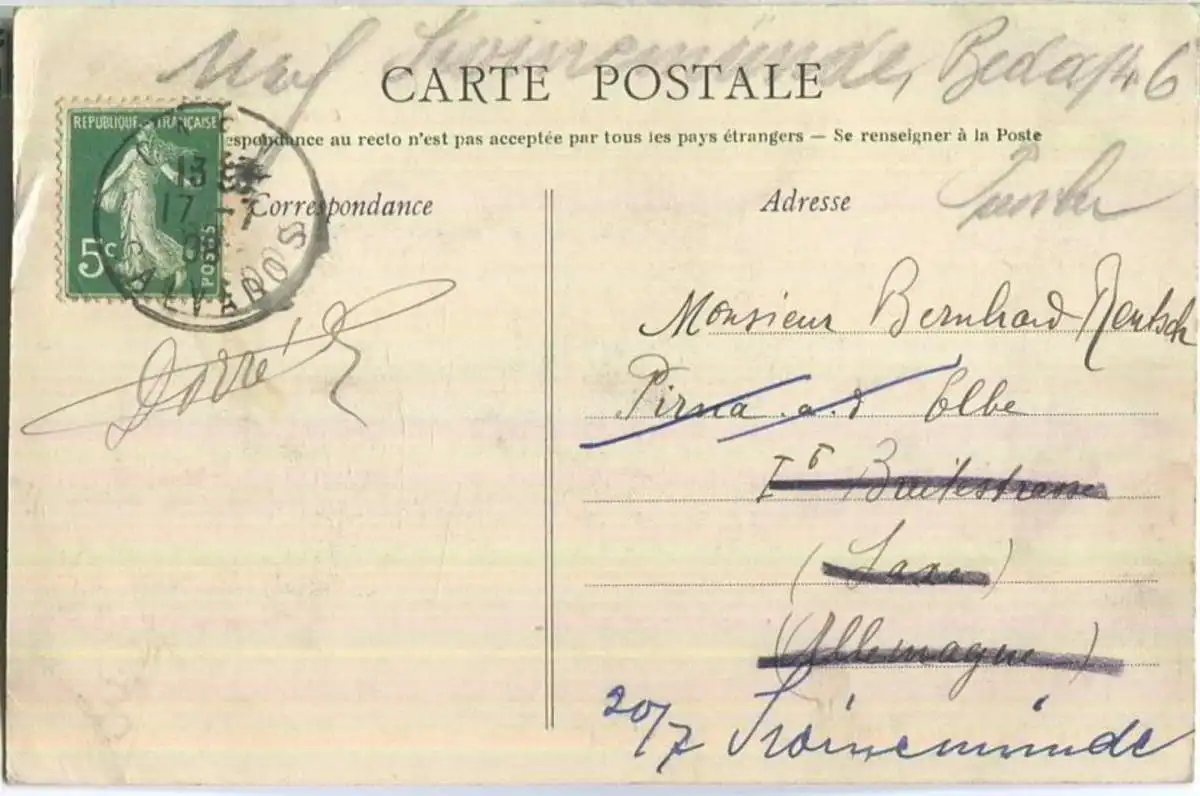 Swinemünde,
CARTE POSTALE
espondance au recto n'est pas acceptée par tous les pays étrangers — Se renseigner à la Poste
REPUBLIQUE FRANÇAISE
5c
POSTES
13
17 - 7
09
CALVADOS
Correspondance
Adresse
Dorré
Monsieur Bernhard Rentsch
Pirna a. d Elbe
Breitestrasse
(Saxe)
(Allemagne)
20/7 Swinemünde